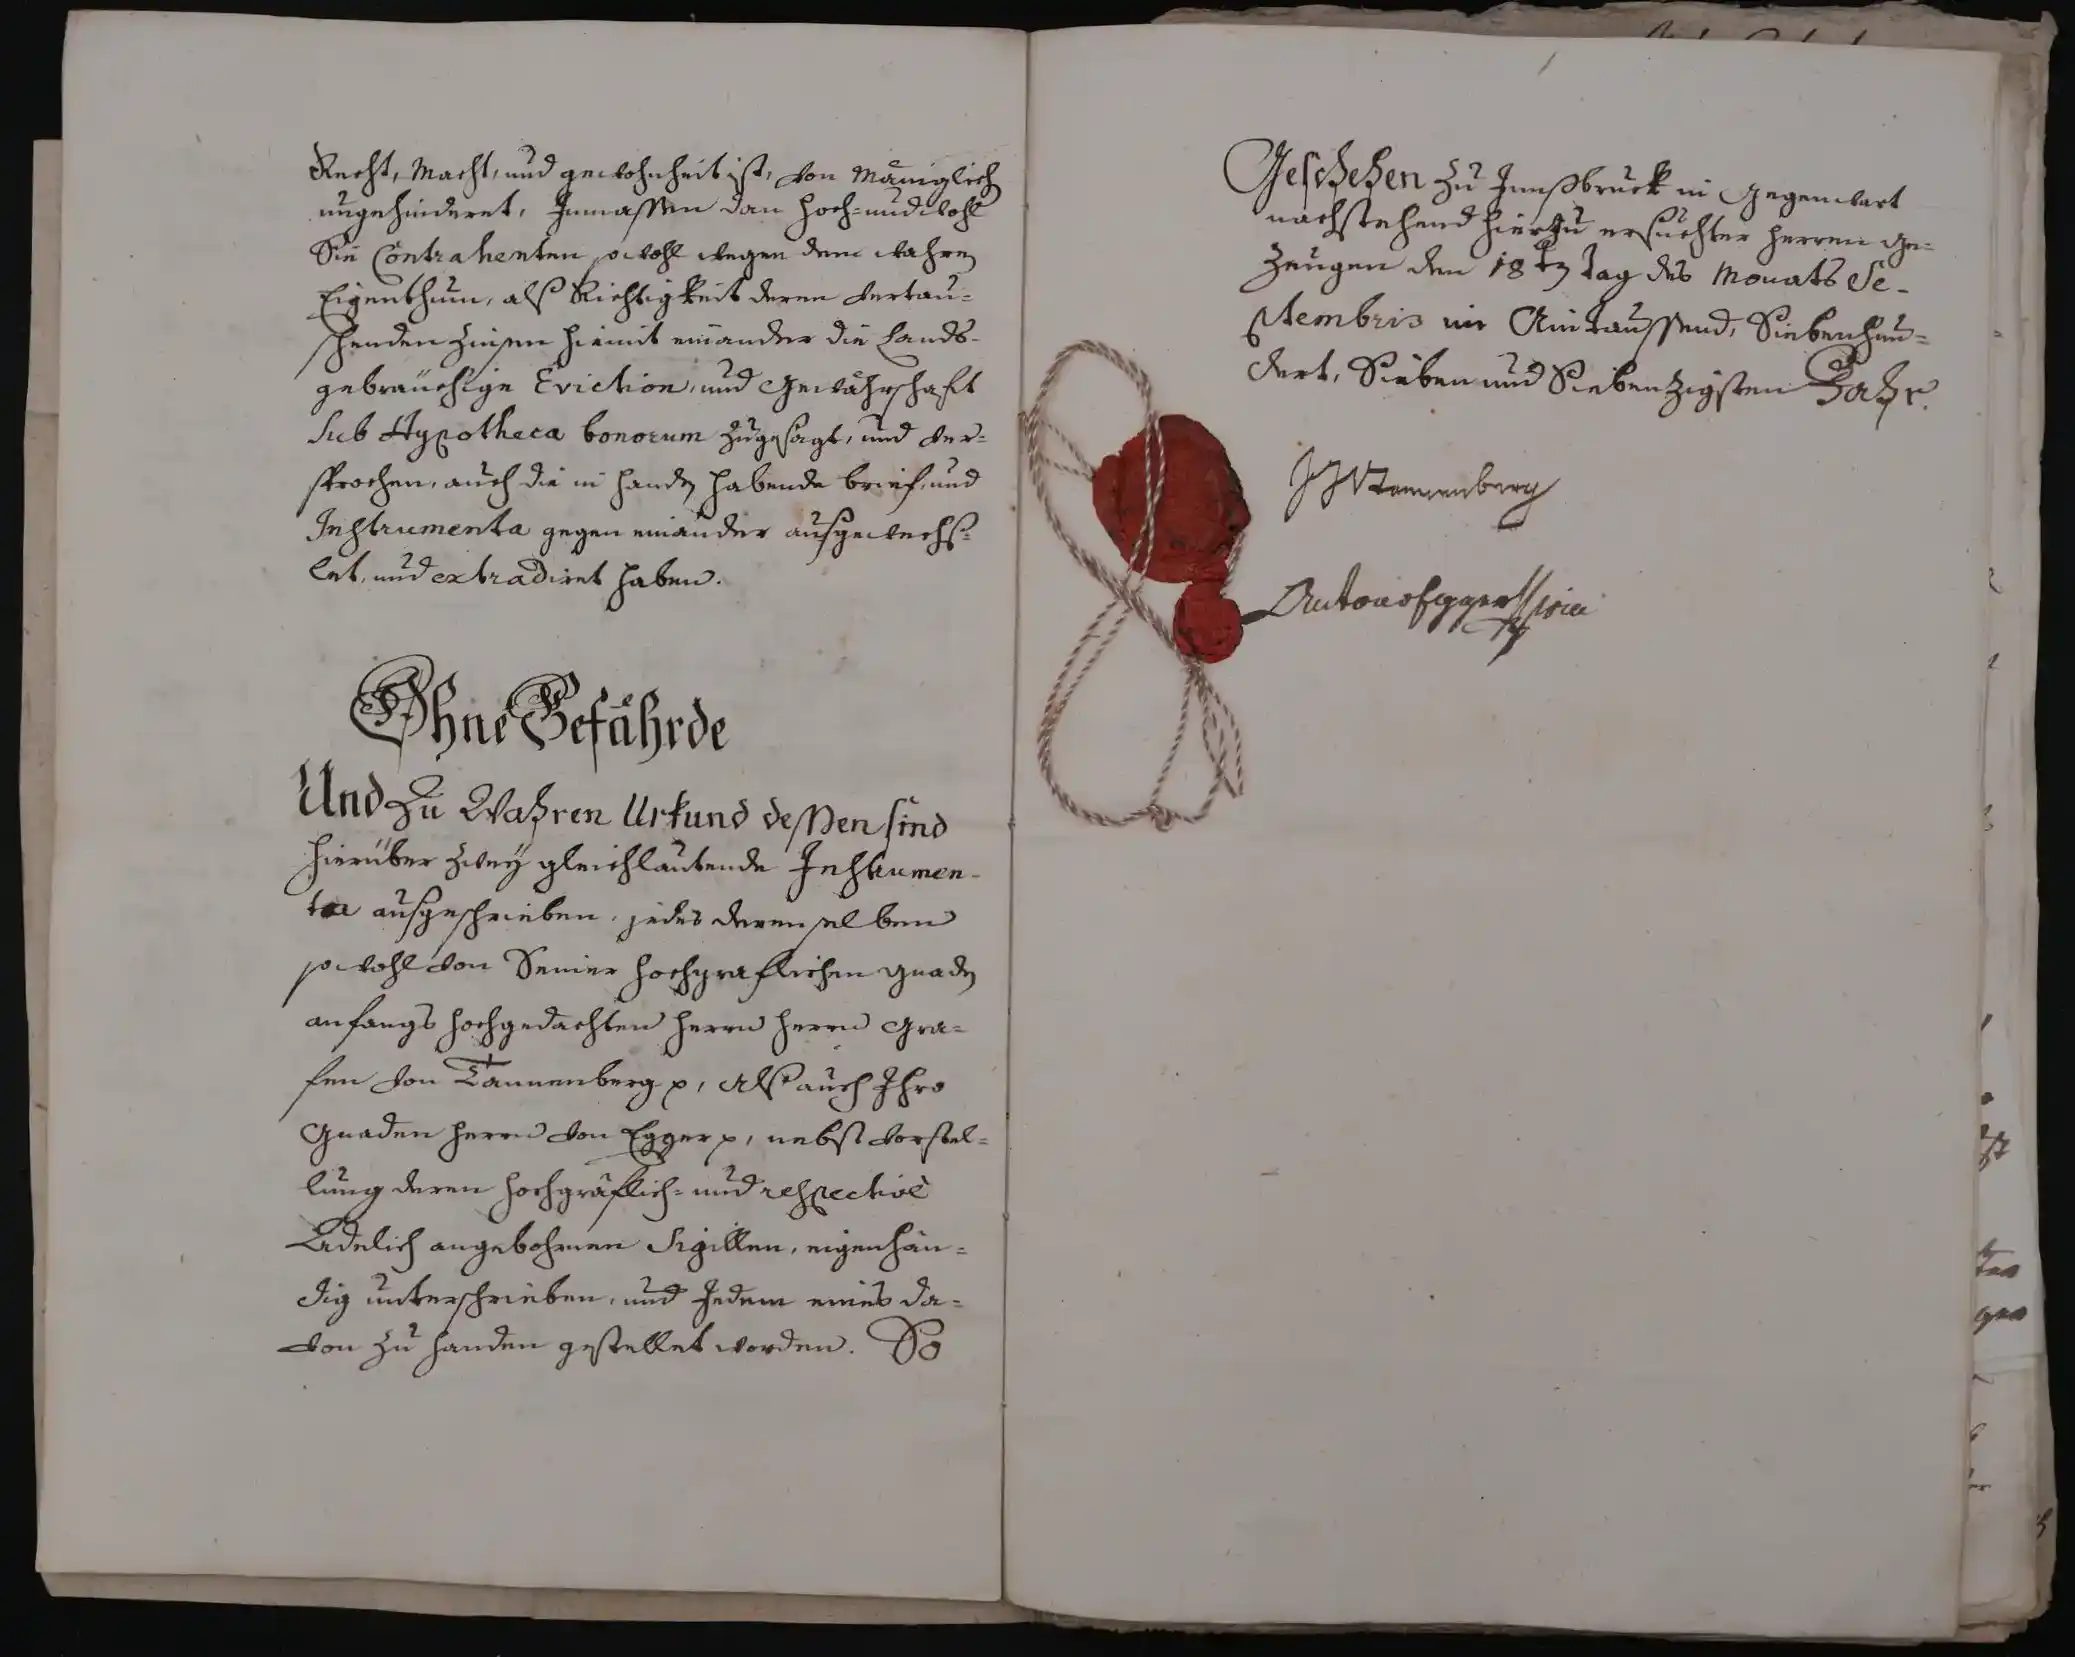 Recht, Macht, und gewohnheit ist, von Mäniglich
ungehindert, Inmassen dan hoch- und wohl
Sie Contrahenten sowohl wegen dem wahren
Eigenthum, alß Richtigkeit deren vertau-
schenden Zinsen hiemit einander die Lands-
gebräuchige Eviction, und Gewährschaft
sub Hypotheca bonorum zugesagt, und ver-
sprochen, auch die in handen habende brief, und
Instrumenta gegen einander ausgewechs-
let, und extradiret haben.
Ohne Gefährde
Und zu Wahren Urkund dessen sind
hierüber zwey gleichlautende Instrumen-
ta ausgeschrieben, jedes derenselben
sowohl von Seiner hochgräflichen gnaden
anfangs hochgedachten herrn herrn Gra-
fen von Tannenberg p, Alß auch Ihro
Gnaden herrn von Egger p, nebst vorstel-
lung deren hochgräflich- und respective
Adelich angebohrnen Sigillen, eigenhän-
dig unterschrieben, und Jedem eines da-
von zu handen gestellet worden. So
Geschehen zu Innßbruck in Gegenwart
nachstehend hierzu ersuchter herren Ge-
zeugen den 18ten tag des Monats Se-
ptembris im Aintaussend, Siebenhun-
dert, Sieben und Siebenzigsten Jahr.
Tannenberg
Anton v Egger